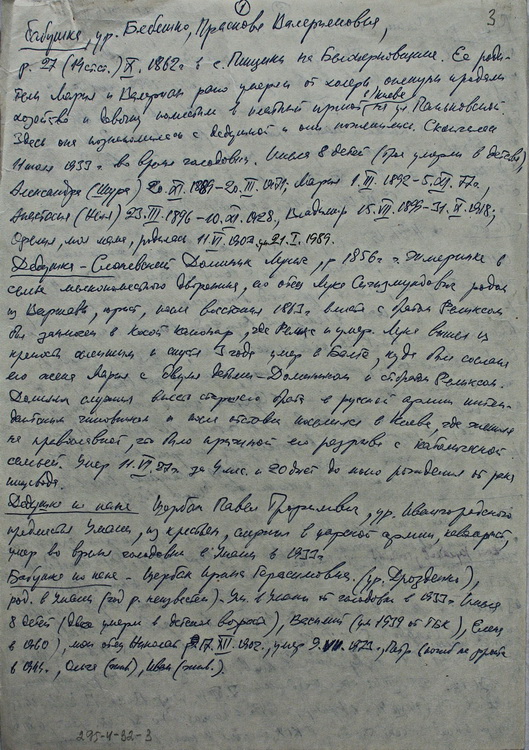 ① 3
Бабушка, ур. Бебешко, Прасковья Валерьяновна,
р. 27 (14 ст.ст.) X. 1862 г в с. Пищики на Белоцерковщине. Ее роди-
тели Мария и Валерьян рано умерли от холеры, опекуны продали
хозяйство и девочку поместили в платный приют в Киеве на ул
Здесь она познакомилась с дедушкой и они поженились. Скончалась
11 июля 1933 г. во время голодовки. Имела 8 детей (трое умерли в детстве)
Александра (Шура) 20.XI.1889-20.III.1971; Мария 1.III.1892-5.IX.77г.,
Анастасия (Ися) 23.III.1896-10.XI.1928, Владимир 15.VII.1899-31.X.1918;
моя мама, родилась 11.VI.1902, ум 21.I.1989.
Дедушка - Доминик Лукич, р 1856 г. в
семье мелкопоместного дворянина, его отец Лука Сигизмундович родом
из Варшавы, юрист, после восстания 1863 г. вместе с братом Феликсом
был заточен в Косой капонир, где Феликс и умер. Лука вышел из
крепости и спустя 3 года умер в Балте, куда была сослана
его жена Мария с двумя детьми - Домиником и Феликсом.
Доминик служил вместо старшего брата в русской армии интен-
дантским чиновником и после отставки поселился в Киеве, где женился
на православной, что было причиной его разрыва с католической
семьей. Умер 11.VI.27г. за 4 мес. и 20 дней до моего рождения от рака
пищевода.
Дедушка по папе - Щербак Павел Трофимович, ур. Ивангородского
предместья Умани, из крестьян, служил в царской армии кавалерист,
умер во время голодовки в Умани в 1933 г.
Бабушка по папе - Щербак Ирина Герасимовна (ур. Дрозденко),
род. в Умани (год р. неизвестен). Ум. в Умани от голодовки в 1933 г. Имела
8 детей (двое умерли в детском возрасте), Василий (ум 1939 от ТБК), Елена
в 1960), мой отец Николай р 17.XII.1902., умер 9.VII.1973., Петр (погиб на фронте
в 1944., Ольга (жив.), Иван (жив.).
295-4-32-3